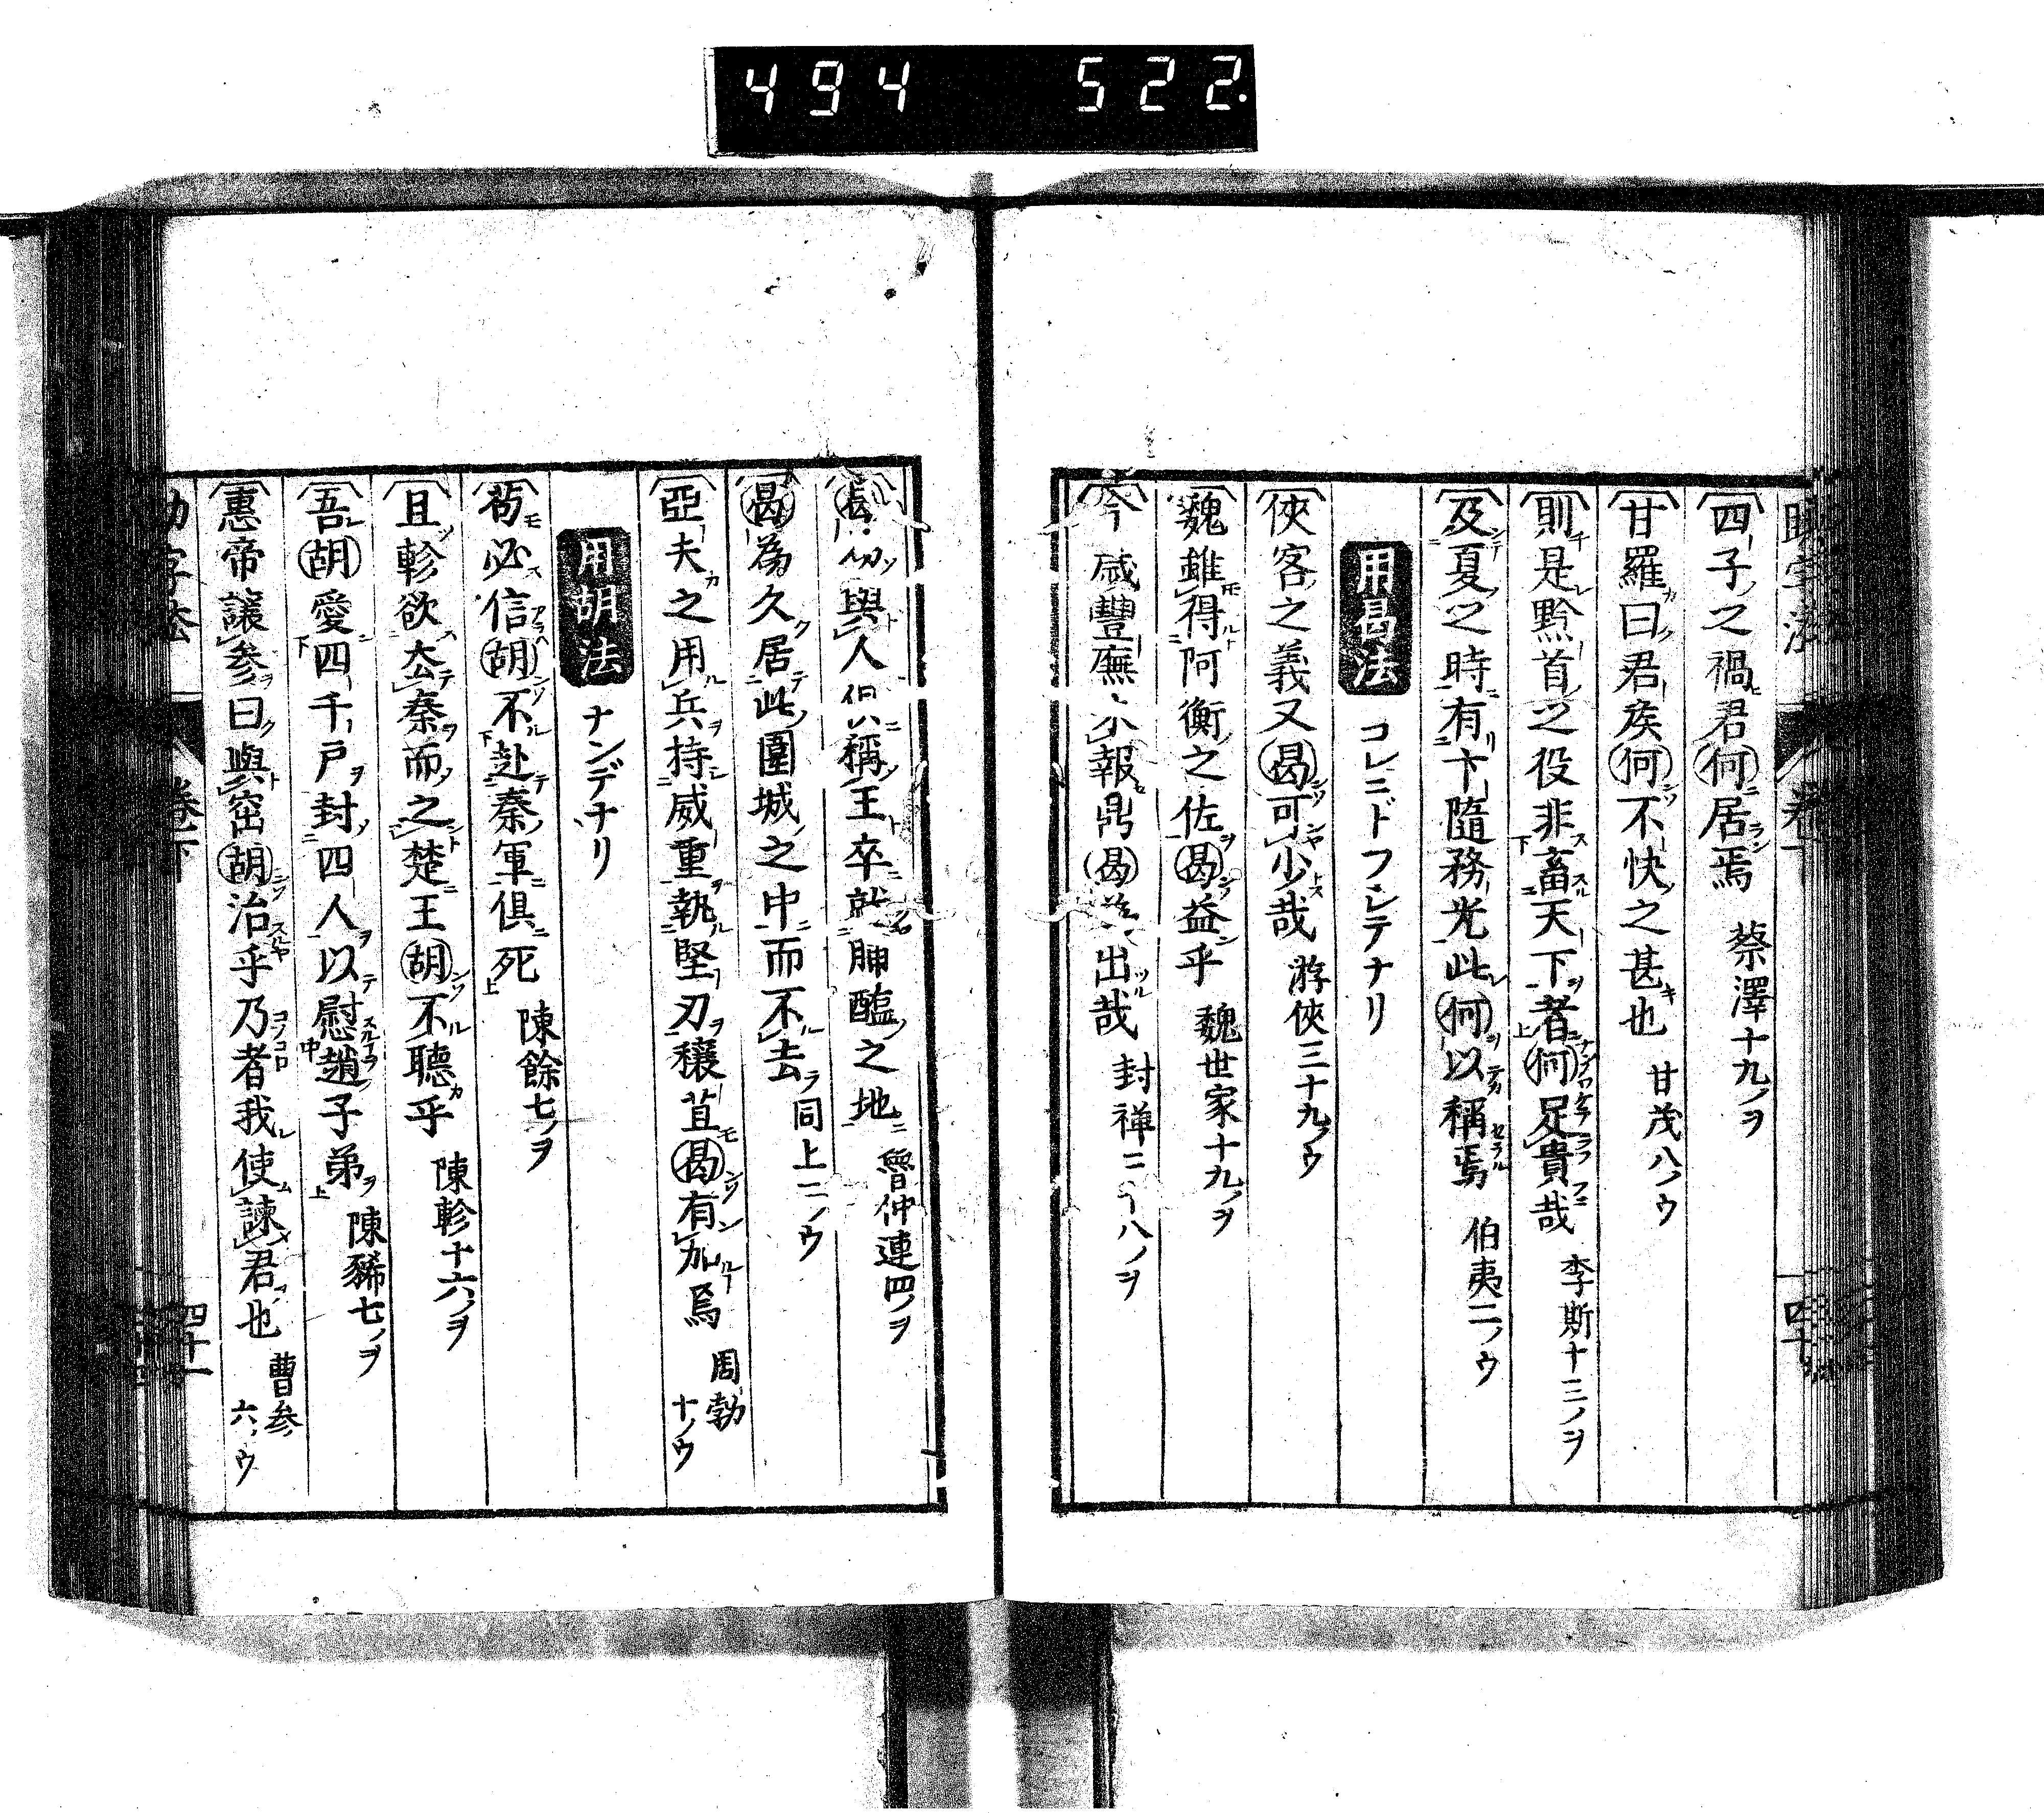 494 522
四子之禍君何居焉 蔡澤十九ノヲ
甘羅曰君矦何不快之甚也 甘茂八ノウ
則是黔首之役非畜天下者何足貴哉 李斯十三ノヲ
及夏之時有卞隨務光此何以稱焉 伯夷二ノウ
用曷法 コレニドフシテナリ
俠客之義又曷可少哉 游俠三十九ノウ
魏雖得阿衡之佐曷益乎 魏世家十九ノヲ
今歲豐廡報鼎曷出哉 封禅二十八ノヲ
與人俱稱王卒就脯醢之地 魯仲連四ノヲ
曷為久居此圍城之中而不去 同上二ノウ
亞夫之用兵持威重執堅刃穰苴曷有加焉 周勃十ノウ
用胡法 ナンデナリ
苟必信胡不赴秦軍俱死 陳餘七ノヲ
且軫欲去秦而之楚王胡不聽乎 陳軫十六ノヲ
吾胡愛四千戸封四人以慰趙子弟 陳豨七ノヲ
惠帝讓參曰與窋胡治乎乃者我使諫君也 曹参六ノウ
卷下
四十一